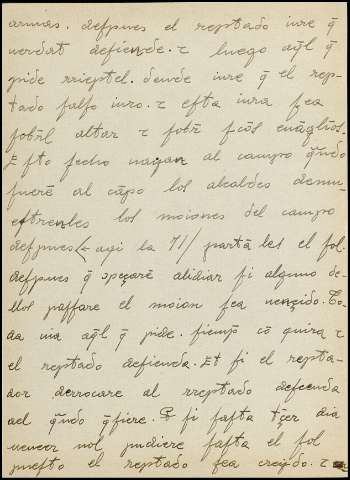 armas. defpues el reptado iure q̃
uerdat defiende. τ luego aq̃l q̃
pide rrieptel. dende iure q̃ el rep-
tado falfo iuro. τ efta iura fea
fobr̃l altar τ fobr̃ fc̃os euãglios.
Efto fecho uayan al campo q̃ndo
fuerẽ al cãpo los alcaldes demu-
eftrenles los moiones del campo
defpues aqi la 71/ partã les el fol.
defpues q̃ opeçarẽ alidiar fi alguno de-
llos paffare el moion fea uençido. To-
da uia aq̃l q̃ pide. fiemp̃ cõ quira τ
el reptado defienda. Et fi el repta-
dor derrocare al rreptado defcenda
del q̃ndo q̃fiere. Et fi fafta tc̃er dia
uencer nol pudiere fafta el fol
puefto el reptado fea creydo. τ